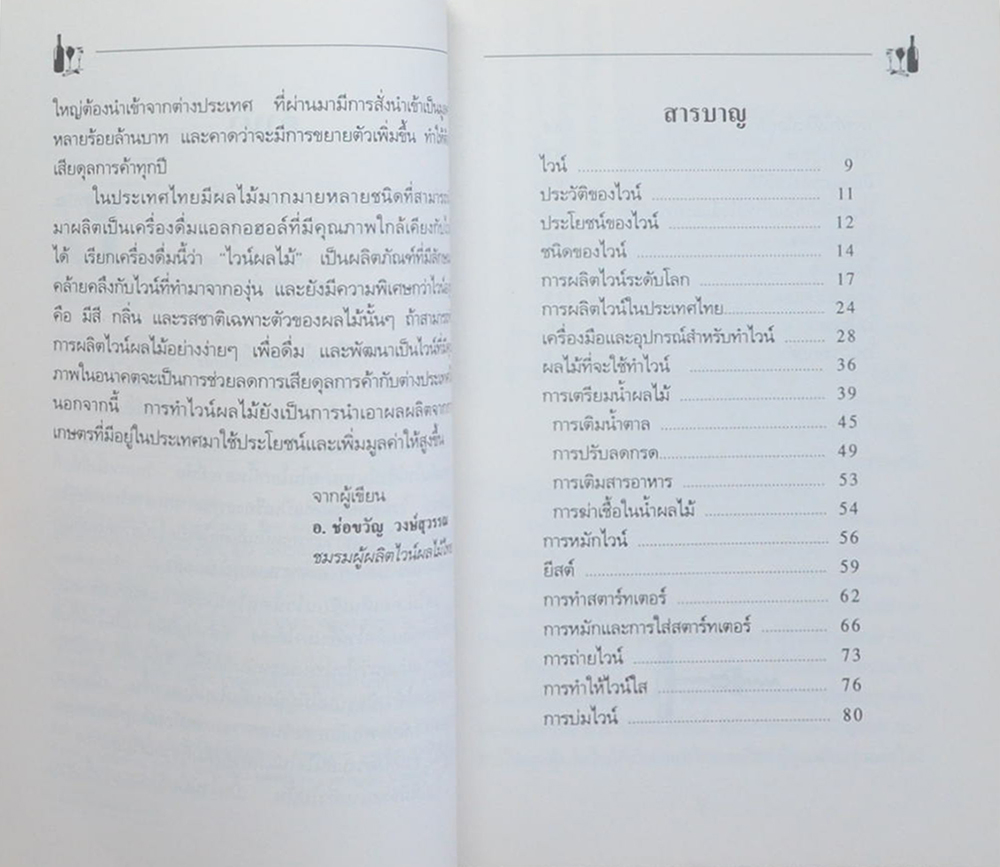 ใหญ่ต้องนำเข้าจากต่างประเทศ ที่ผ่านมามีการสั่งนำเข้าเป็น
หลายร้อยล้านบาท และคาดว่าจะมีการขยายตัวเพิ่มขึ้น
เสียดุลการค้าทุกปี
ในประเทศไทยมีผลไม้มากมายหลายชนิดที่สามารถ
มาผลิตเป็นเครื่องดื่มแอลกอฮอล์ที่มีคุณภาพใกล้เคียงกับ
ได้ เรียกเครื่องดื่มนี้ว่า "ไวน์ผลไม้" เป็นผลิตภัณฑ์ที่มี
คล้ายคลึงกับไวน์ที่ทำมาจากองุ่น และยังมีความพิเศษกว่า
คือ มีสี กลิ่น และรสชาติเฉพาะตัวของผลไม้นั้นๆ ถ้าสามารถ
การผลิตไวน์ผลไม้อย่างง่ายๆ เพื่อดื่ม และพัฒนาเป็นไวน์ที่
ภาพในอนาคตจะเป็นการช่วยลดการเสียดุลการค้ากับต่างประเทศ
นอกจากนี้ การทำไวน์ผลไม้ยังเป็นการนำเอาผลผลิต
เกษตรที่มีอยู่ในประเทศมาใช้ประโยชน์และเพิ่มมูลค่าให้สูงขึ้น
จากผู้เขียน
อ. ช่อขวัญ วงษ์สุวรรณ
ชมรมผู้ผลิตไวน์ผลไม้ไทย
สารบาญ
ไวน์ 9
ประวัติของไวน์ 11
ประโยชน์ของไวน์ 12
ชนิดของไวน์ 14
การผลิตไวน์ระดับโลก 17
การผลิตไวน์ในประเทศไทย 24
เครื่องมือและอุปกรณ์สำหรับทำไวน์ 28
ผลไม้ที่จะใช้ทำไวน์ 36
การเตรียมน้ำผลไม้ 39
การเติมน้ำตาล 45
การปรับลดกรด 49
การเติมสารอาหาร 53
การฆ่าเชื้อในน้ำผลไม้ 54
การหมักไวน์ 56
ยีสต์ 59
การทำสตาร์ทเตอร์ 62
การหมักและการใส่สตาร์ทเตอร์ 66
การถ่ายไวน์ 73
การทำให้ไวน์ใส 76
การบ่มไวน์ 80